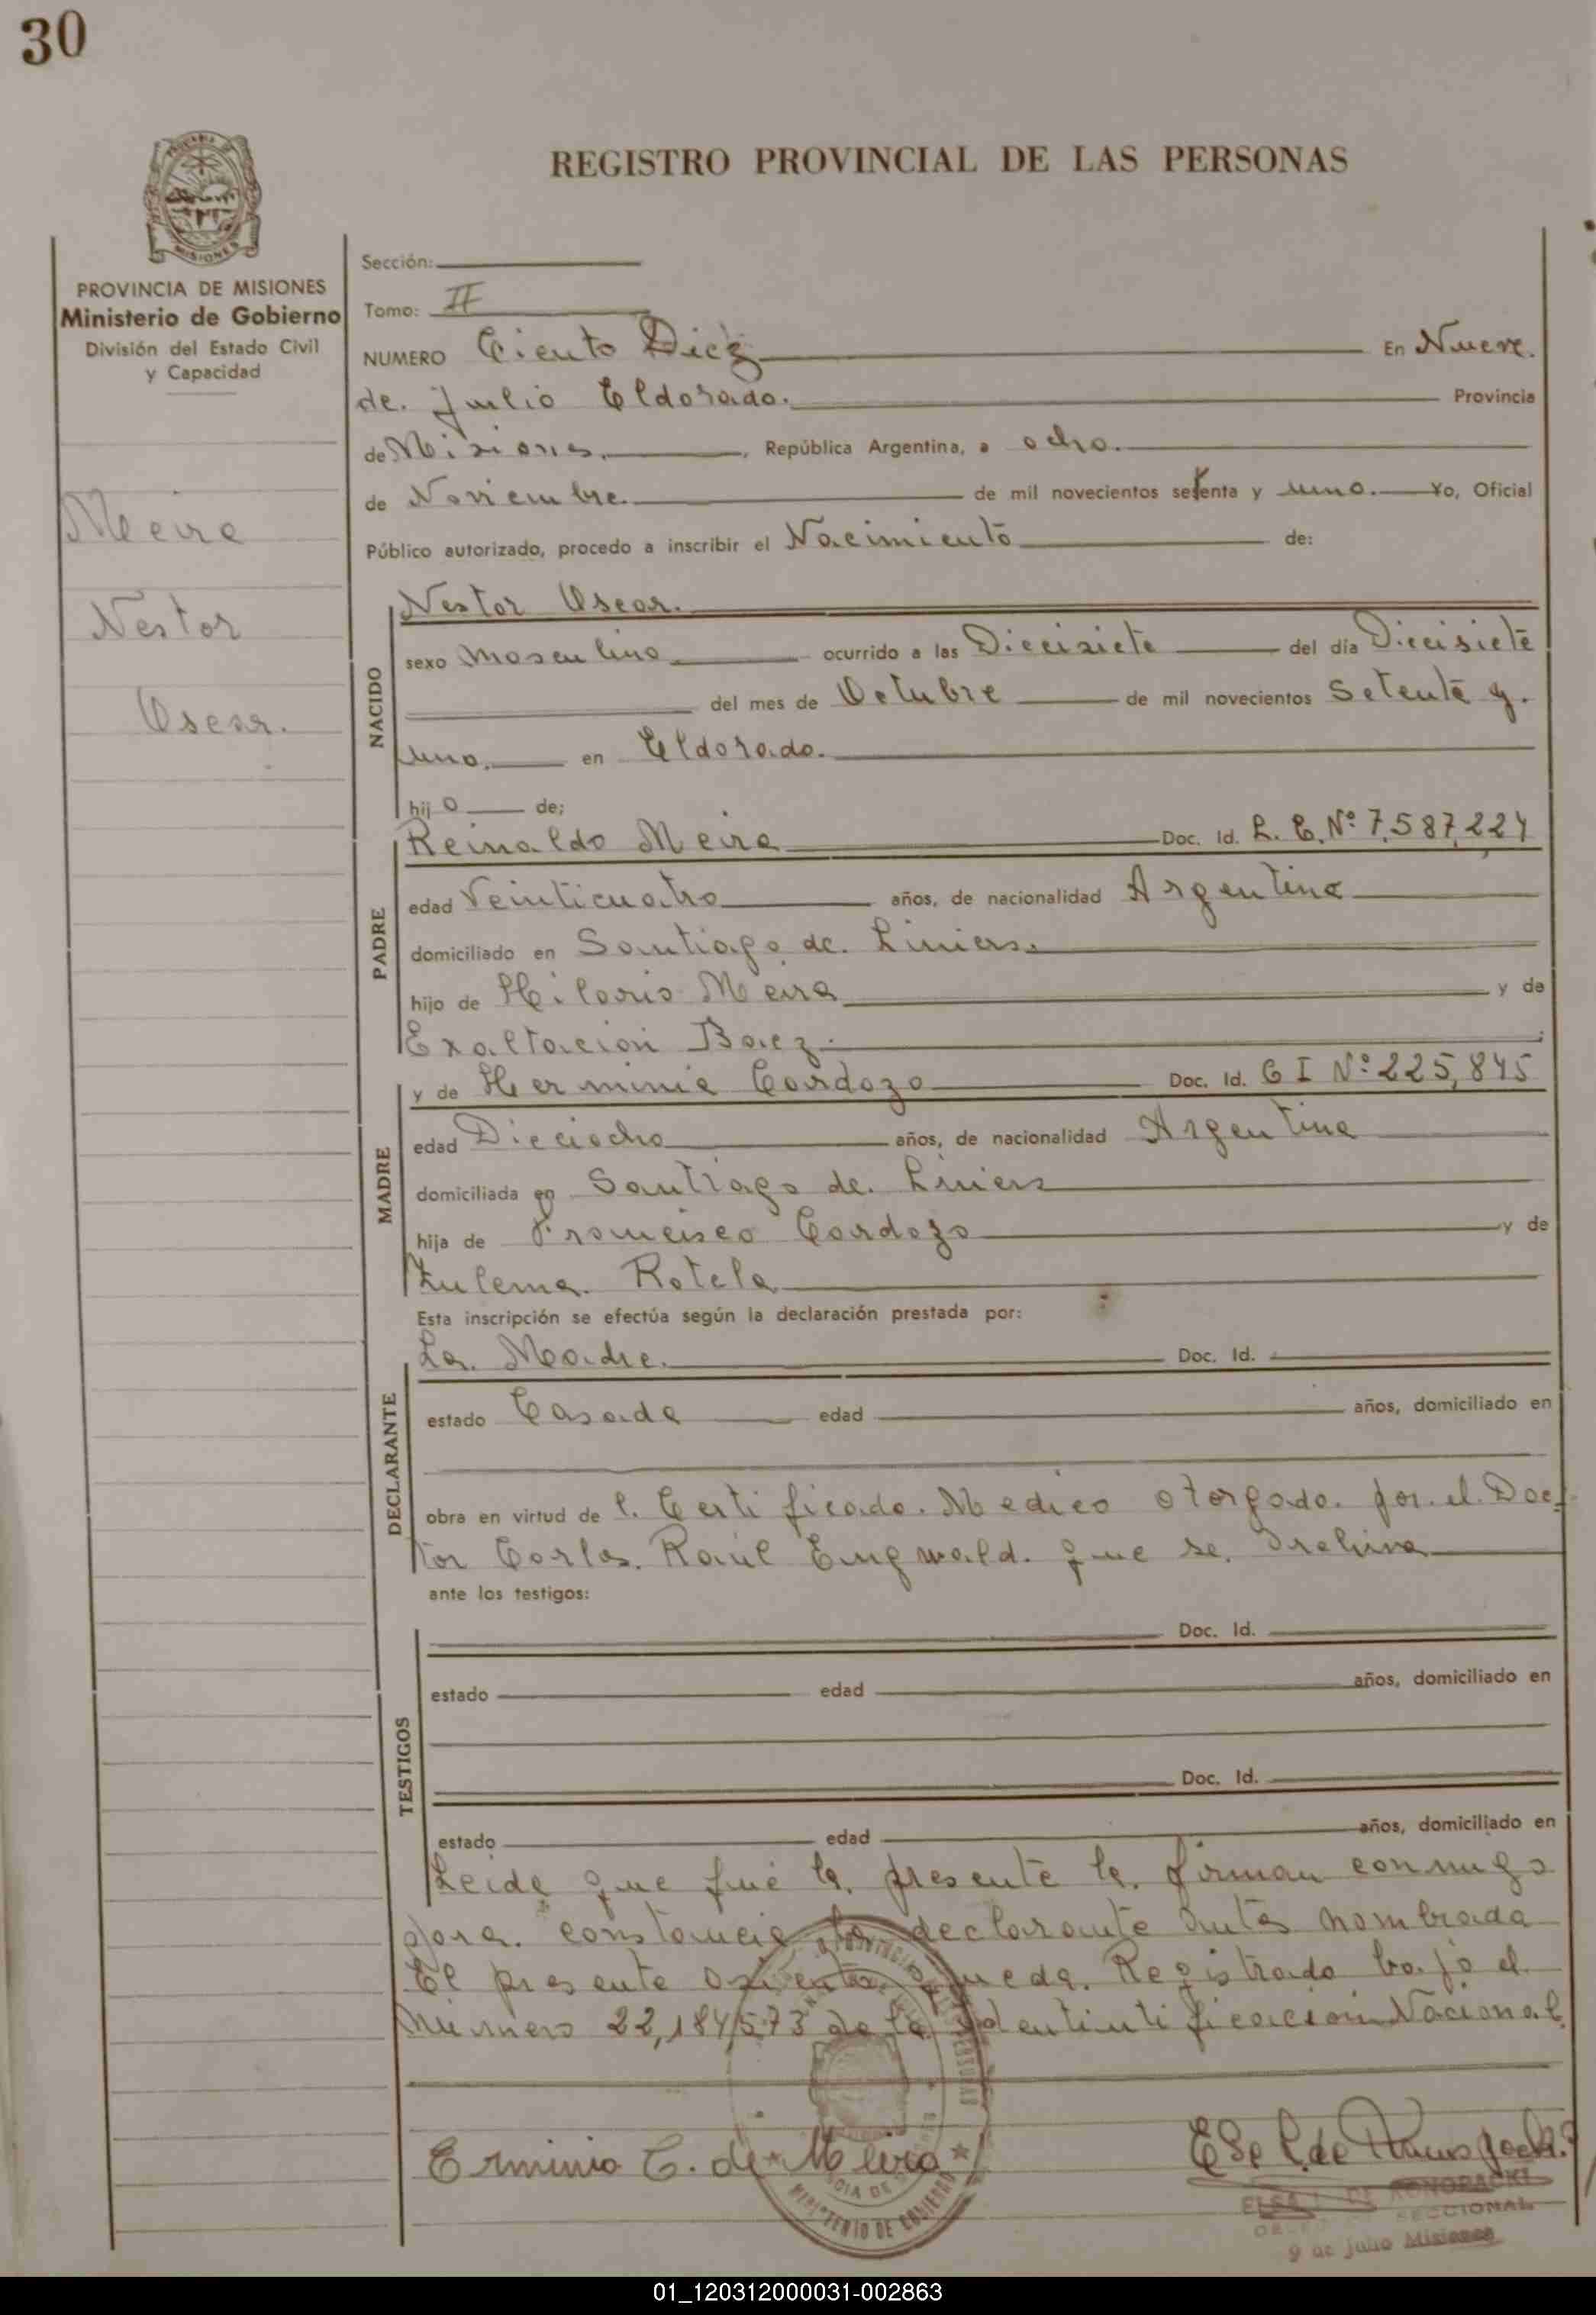 30
REGISTRO PROVINCIAL DE LAS PERSONAS
MISIONES
PROVINCIA DE MISIONES
Ministerio de Gobierno
División del Estado Civil
y Capacidad
Meira
Nestor
Oscar.
Sección:
Tomo: II
NUMERO Ciento Diez En Nueve.
de. Julio Eldorado. Provincia
de Misiones. , República Argentina, a ocho.
de Noviembre. de mil novecientos setenta y uno. Yo, Oficial
Público autorizado, procedo a inscribir el Nacimiento de:
NACIDO
Nestor Oscar.
sexo Masculino ocurrido a las Diecisiete del día Diecisiete
del mes de Octubre de mil novecientos Setenta y.
uno. en Eldorado.
hijo de;
PADRE
Reinaldo Meira Doc. Id. L. E. Nº 7.587,224
edad Veinticuatro años, de nacionalidad Argentina
domiciliado en Santiago. de. Liniers.
hijo de Hilario Meira y de
Exaltación Baez.
MADRE
y de Herminia Cardozo Doc. Id. C I Nº 225,845
edad Dieciocho años, de nacionalidad Argentina
domiciliada en Santiago de. Liniers
hija de Francisco Cardozo y de
Zulema. Rotela
Esta inscripción se efectúa según la declaración prestada por:
DECLARANTE
La. Madre. Doc. Id.
estado Casada edad años, domiciliado en
obra en virtud de l. Certificado. Medico otorgado. por. el. Doc-
tor Carlos. Raúl que se. archiva
ante los testigos:
TESTIGOS
Doc. Id.
estado edad años, domiciliado en
Doc. Id.
estado edad años, domiciliado en
Leida que fué la. presente la. firman conmigo
para. constancia la declarante antes nombrada
El presente asiento queda. Registrado bajo el.
Número 22,184,573 de la Identintificación Nacional.
Erminia C. de Meira
MINISTERIO DE GOBIERNO
DE KONOPACKI
SECCIONAL
9 de julio Misiones
01_120312000031-002863